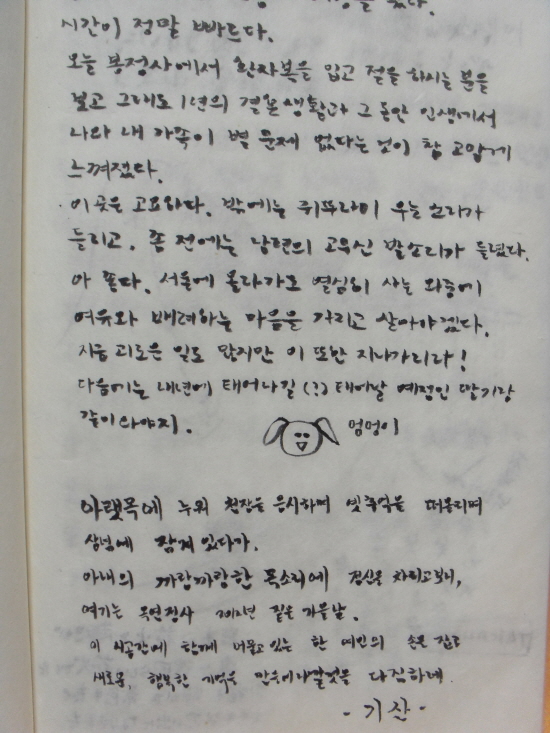 시간이 정말 빠르다.
오늘 봉정사에서 환자복을 입고 절을 하시는 분을
보고 그래도 1년의 결혼생활과 그동안 인생에서
나와 내 가족이 별 문제 없다는 것이 참 고맙게
느껴졌다.
이곳은 고요하다. 밖에는 귀뚜라미 우는 소리가
들리고, 좀 전에는 남편의 고무신 발소리가 들렸다.
아 좋다. 서울에 올라가도 열심히 사는 와중에
여유와 배려하는 마음을 가지고 살아야겠다.
지금 괴로운 일도 많지만 이 또한 지나가리라!
다음에는 내년에 태어나길(?) 태어날 예정인 딸기랑
같이 와야지.
멍멍이
아랫목에 누워 천장을 응시하며 옛추억을 떠올리며
상념에 잠겨 있다가,
아내의 까랑까랑한 목소리에 정신을 차리고보니,
여기는 목연정사 2012년 짙은 가을날.
이 시공간에 함께 머물고 있는 한 여인의 손을 잡고
새로운, 행복한 기억을 만들어나갈것을 다짐하며.
- 기산 -